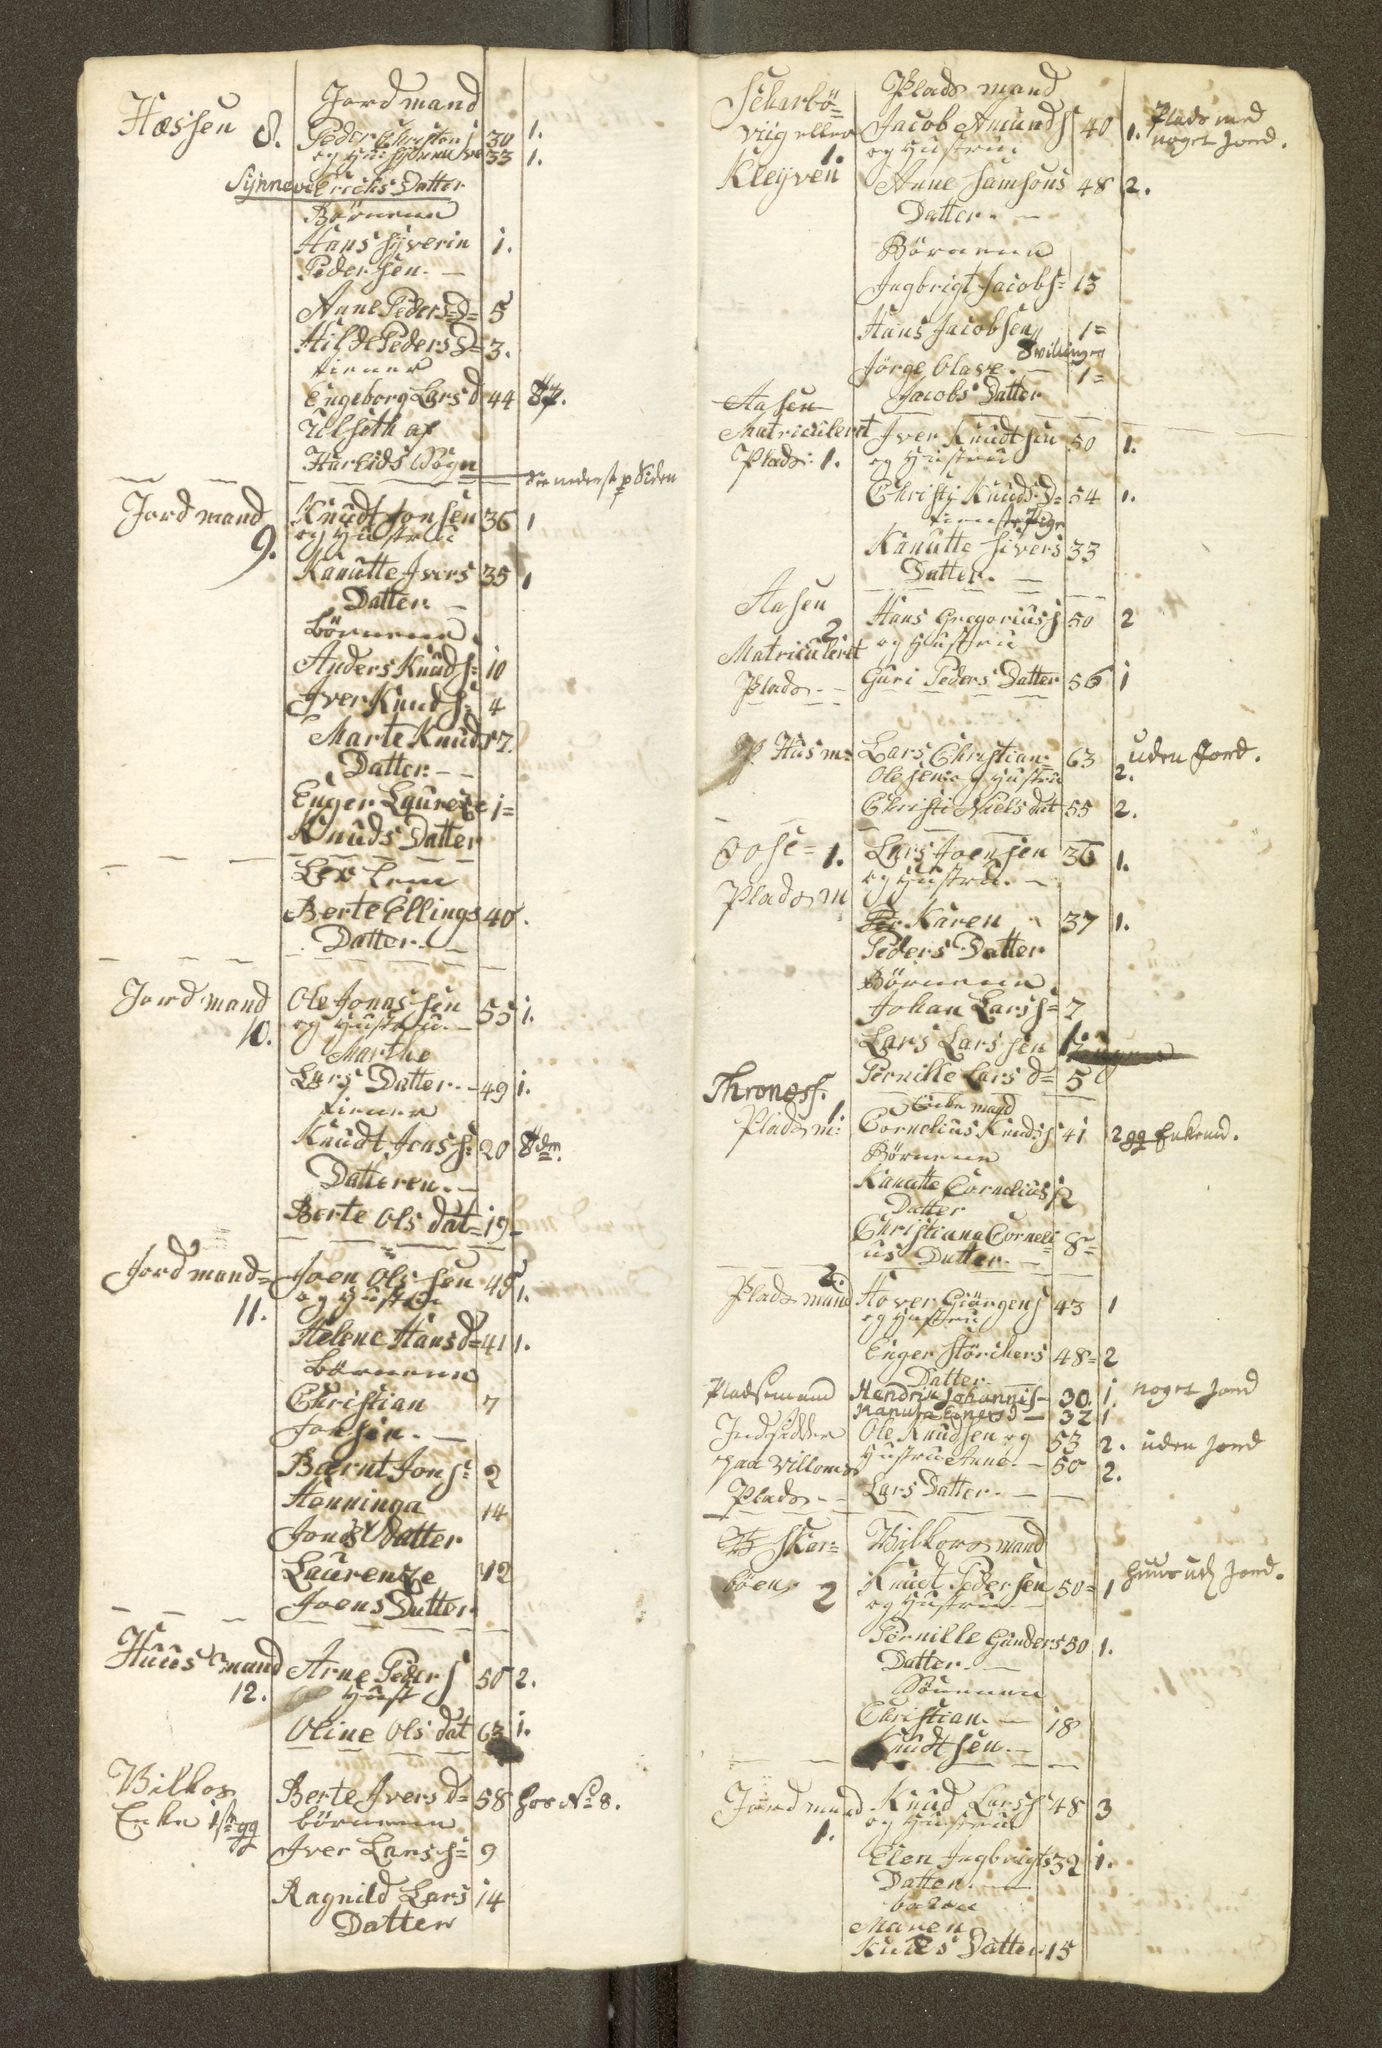 Jordmand
Hæssen 8. Peder Christens 30 1.
og Hustrue 33 1.
Synnevе Erichs Datter
Börnene
Hans Syverin 1.
Pedersen. —
Anne Peders D= 5
Hilde Peders D= 3.
tiener
Engeborg Lars d 44
Ulseth af
Hareids Sogn
See nederst p Siden
Jordmand Knudt Jonsen 36 1
9. og Hustrue
Kanutte Ivers 35 1
Datter. —
börnene
Anders Knuds: 10
Iver Knuds: 4
Marte Knuds 17.
Datter. — —
Enger Laurese 1=
Knuds Datter
Berte Ellings 40.
Datter. —
Jordmand Ole Jonassen 55 1.
10. og Hustrue. —
Marthe
Lars Datter. — 49 1.
tiener
Knudt Jens s: 20
Datteren. —
Berte Ols dat= 19-
Jordmand= Joen Olssen 49 1.
11. og Hustru
Helene Hans d= 41 1.
börnene
Christian 7
Jonsen. —
Bærnt Jons: 2
Henninga 14
Jons Datter
Laurenze 12
Joens Datter
Huusmand Arne Peders 50 2.
12. Hust
Oline Ols dat 63 1.
Vilkos Berte Ivers d= 58 hos No 8.
Enke börnene
Iver Lars s= 9
Ragnild Lars 14
Datter
Skarbö= Plads mand
viig eller Jacob Amunds 40 1. Plads med
1. og Hustrue noget jord.
Kleyven Anne Samsons 48 2.
Datter. —
Börnene
Ingbrigt Jacobs= 13
Hans Jacobsen 1=
Tvillinger
Jörgeblave. — 1=
Jacobs Datter
Aasen
Matriculeret Iver Knudtsen 50 1.
Plads: 1. og Hustrue
Christi Knuds d= 54 1.
tieneste Pige
Kanutte Sivers 33
Datter. —
Aasen Hans Gregoriuss 50 2
2 og Hustrue
Matriculeret
Plads — Guri Peders Datter 56 1
Husm= Lars Christian= 63 2. uden Jord.
Olesen og Hustrue
Christi Niels dat 55 2.
Oose= 1. Lars Joensen 36 1.
Plads m og Hustrue. —
Karen 37 1.
Peders Datter
Börnene
Johan Lars s= 7
Lars Larssen 1
Pernille Lars d= 5
Throness.
1. Enkemand
Plads m: Cornelius Knuds 41 2 gg Enkemd.
Börnene
Kanutte Cornelius 12
Datter
Christiana Corneli= 8=
us Datter. —
2.
Pladsmand Hover Giörgens 43 1
og Hustrue
Enger Störchers 48= 2
Datter
Pladsmand Hendrik Johannis— 30. 1. noget Jord
Kanuta Einers d — 32 1
Indsidder Ole Knudsen og 53 2. uden Jord
paa Villomss Hustrue Anne. — 50 2.
Plads — Lars Datter. —
Sker= Vilkors mand
böen 2 Knudt Pedersen 50= 1 huus ud Jord.
og Hustrue. —
Pernille Gunders 50 1.
Datter. —
Sönnen
Christian. — 18
Knudtsen. —
Jordmand Knud Larss 48 3
1. og Hustrue
Elen Ingbrigts 32 1.
Datter. —
Maren
Knuds Datter 15